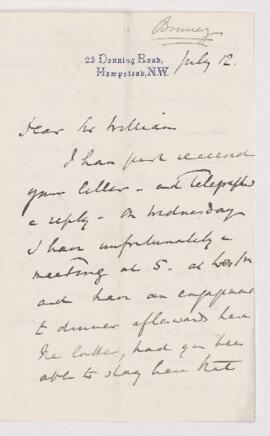 Bonney
23 Denning Road,
Hampstead, N.W.
July 12.
Dear Sir William
I have just received
your letter – and telegraphed
a reply – On Wednesday
I have unfortunately a
meeting at 5. at
and have an engagement
to dinner afterwards here
the latter, had you been
able to stay here that